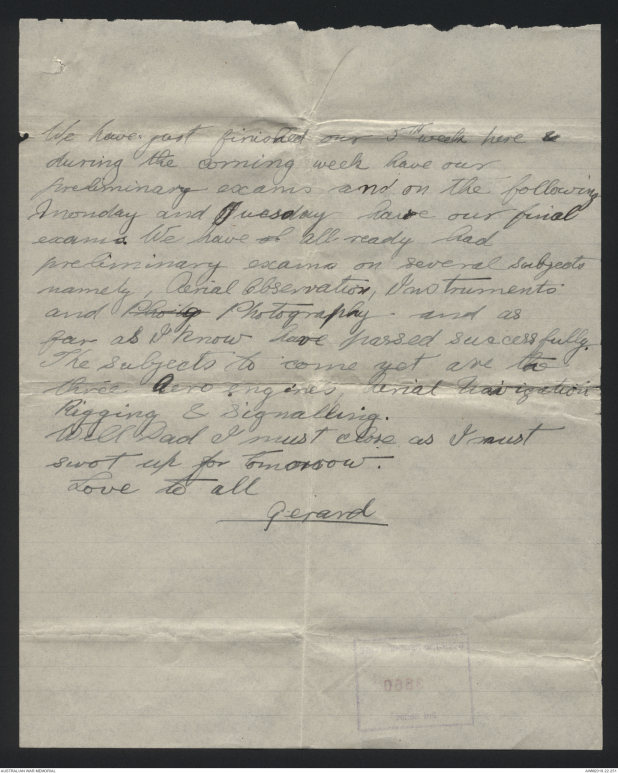 We have just finished our 5th week here &
during the coming week have our
preliminary exams and on the following
Monday and Tuesday have our final
exams. We have all ready had
preliminary exams on several subjects
namely, Aerial Observation, Instruments
and Photography. and as
far as I know have passed successfully.
The subjects to come yet are
three Aero engines, Aerial Navigation
Rigging & Signalling.
Well Dad I must close as I must
swot up for tomorrow.
Love to all
Gerard
3860
AUSTRALIAN WAR MEMORIAL